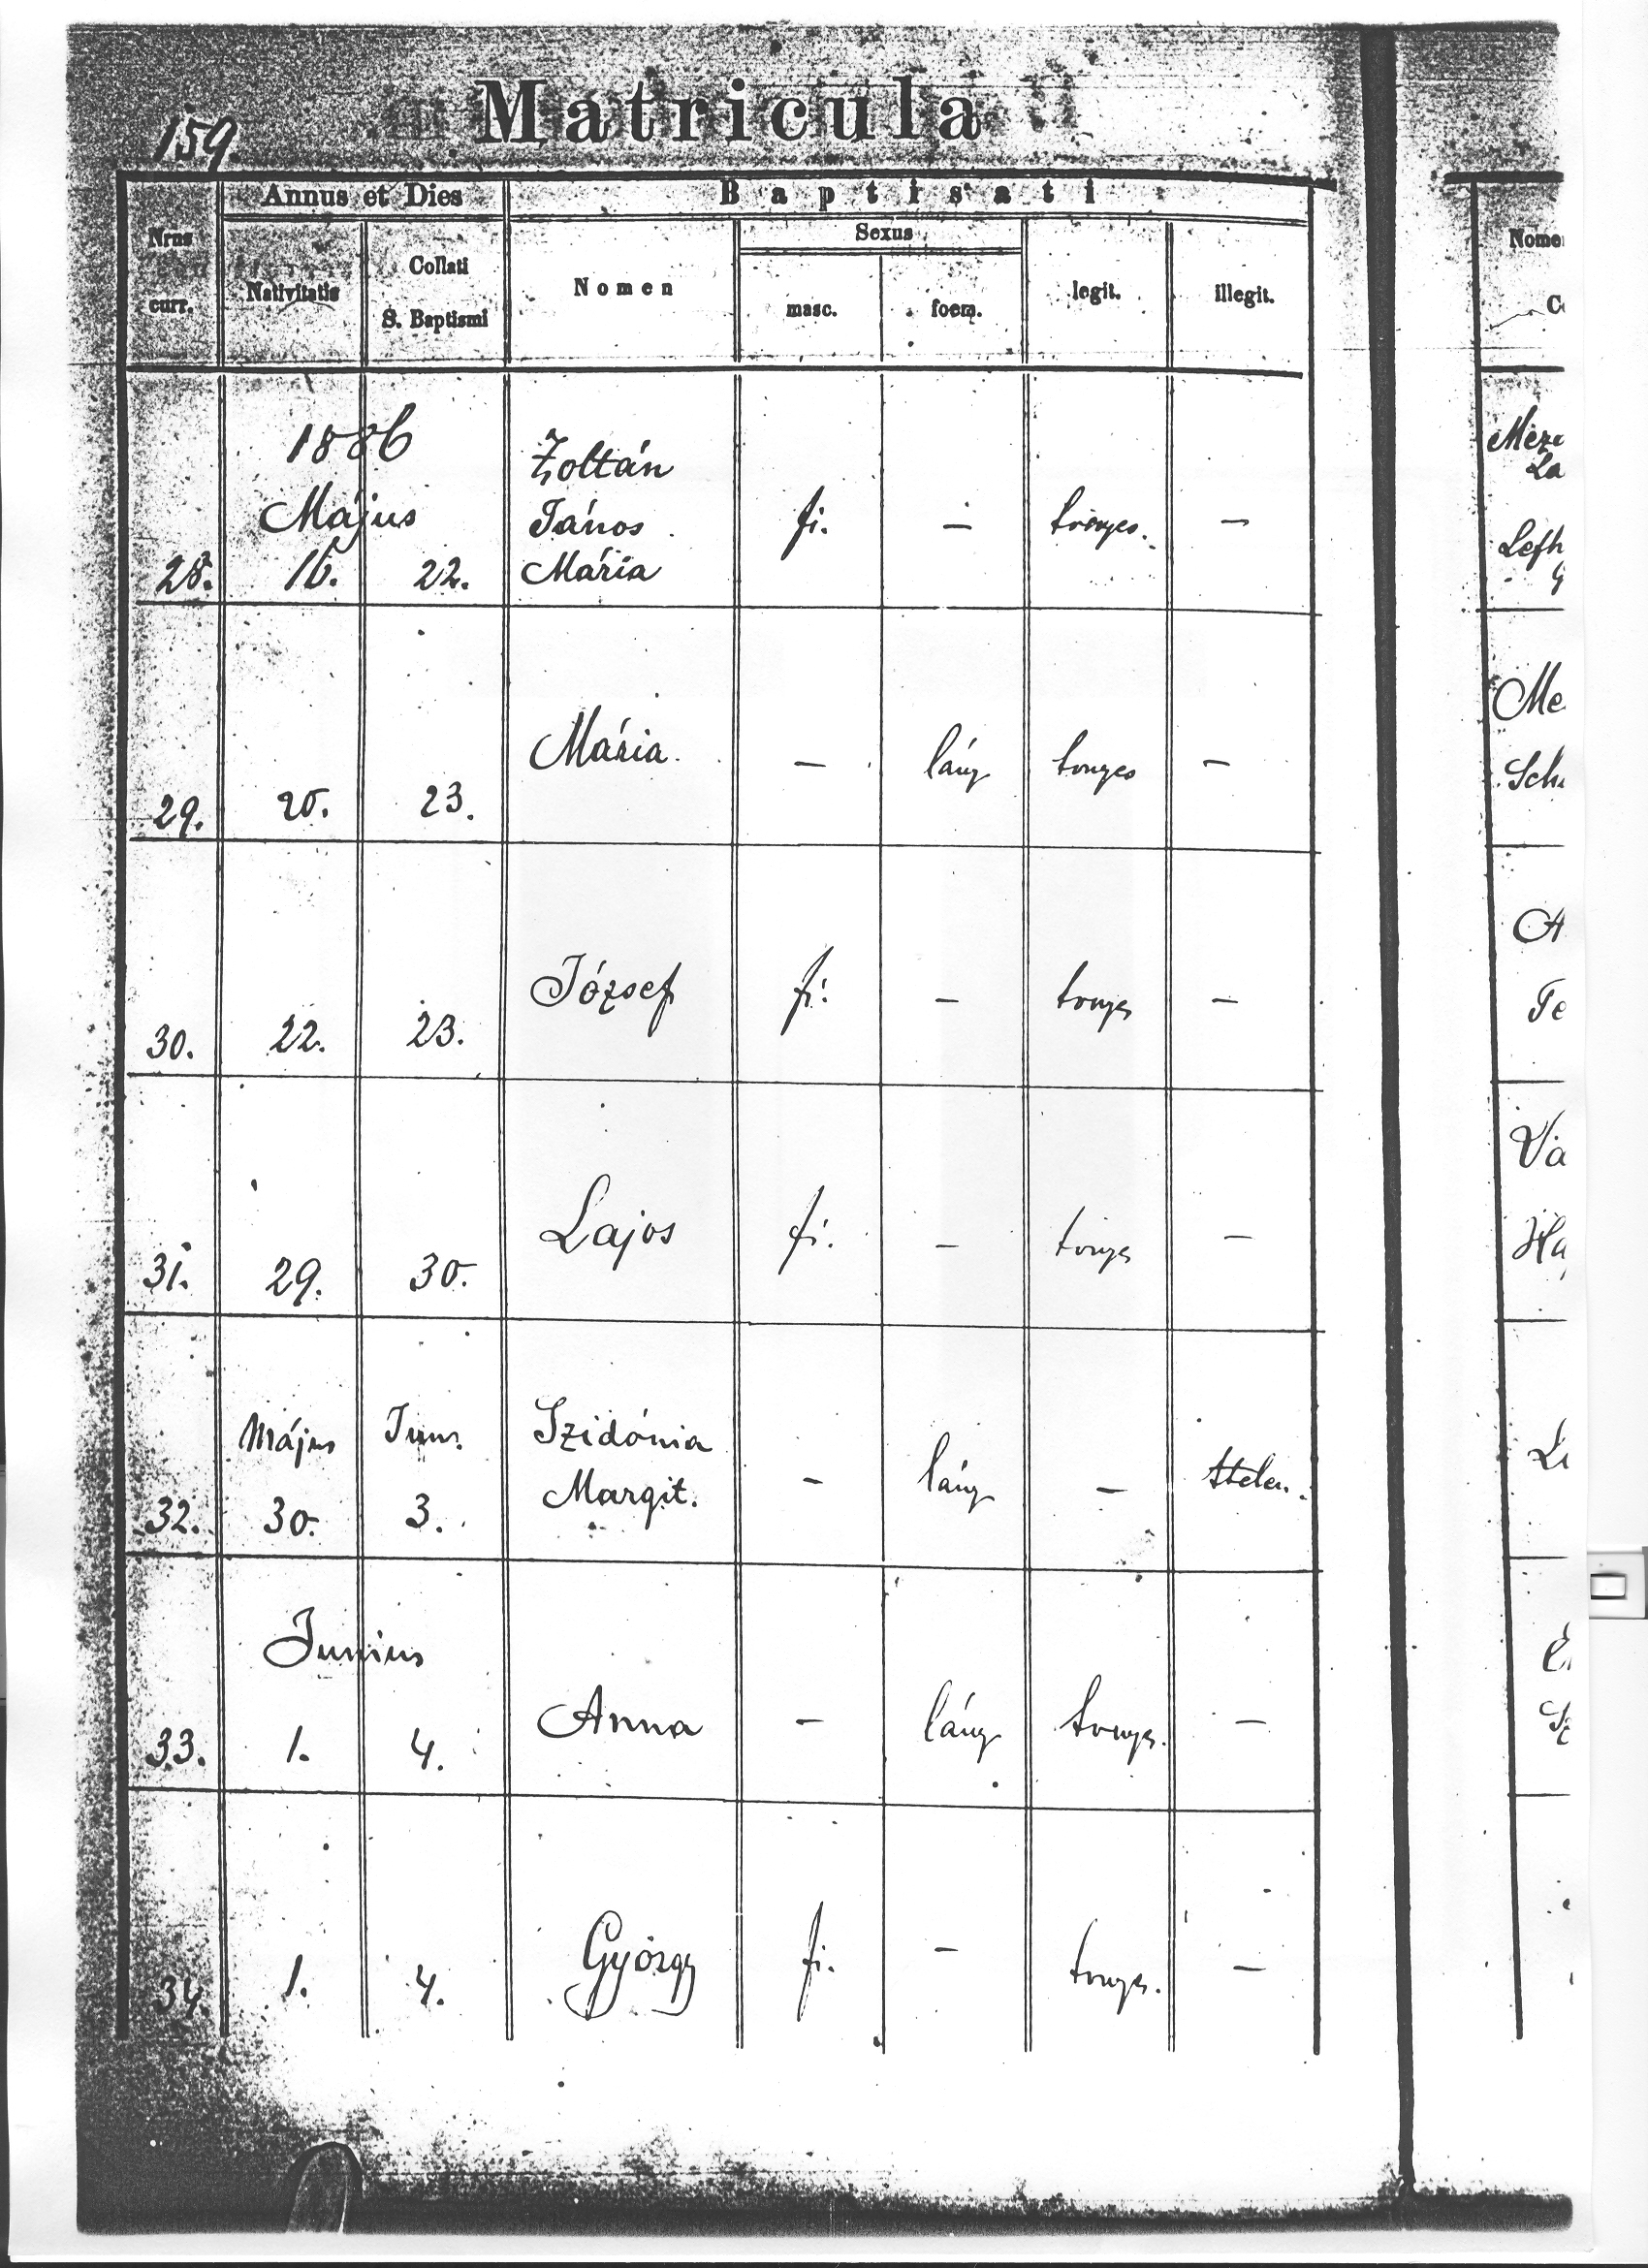 159.
Matricula
Annus et Dies
Baptisati
Nrus curr.
Nativitatis
Collati S. Baptismi
Nomen
Sexus
masc.
foem.
legit.
illegit.
Nome
Co
1886
Május
28. 16. 22. Zoltán János Mária fi. — tvnyes. —
29. 20. 23. Mária — lány tvnyes —
30. 22. 23. József fi. — tvnyes —
31. 29. 30. Lajos fi. — tvnyes —
Május Jun.
32. 30. 3. Szidónia Margit. — lány — ttelen.
Junius
33. 1. 4. Anna — lány tvnyes. —
34. 1. 4. György fi. — tvnyes. —
La
Me
Sch
A
Te
Va